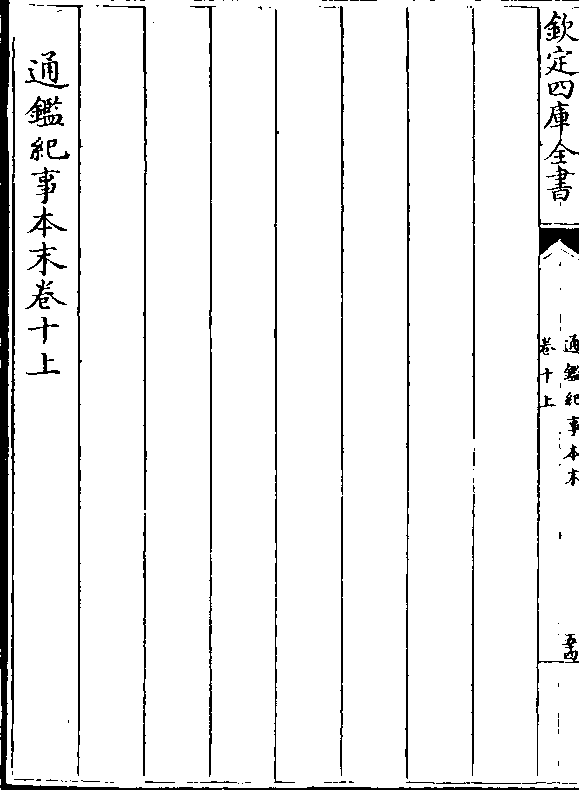 欽定四庫全書
通鑑紀事本末
卷十上
通鑑紀事本末卷十上